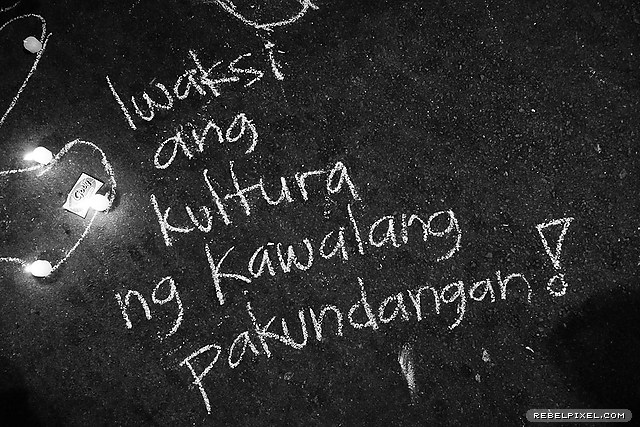 Iwaksi
ang
kultura
ng kawalang
pakundangan!
REBELPIXEL.COM